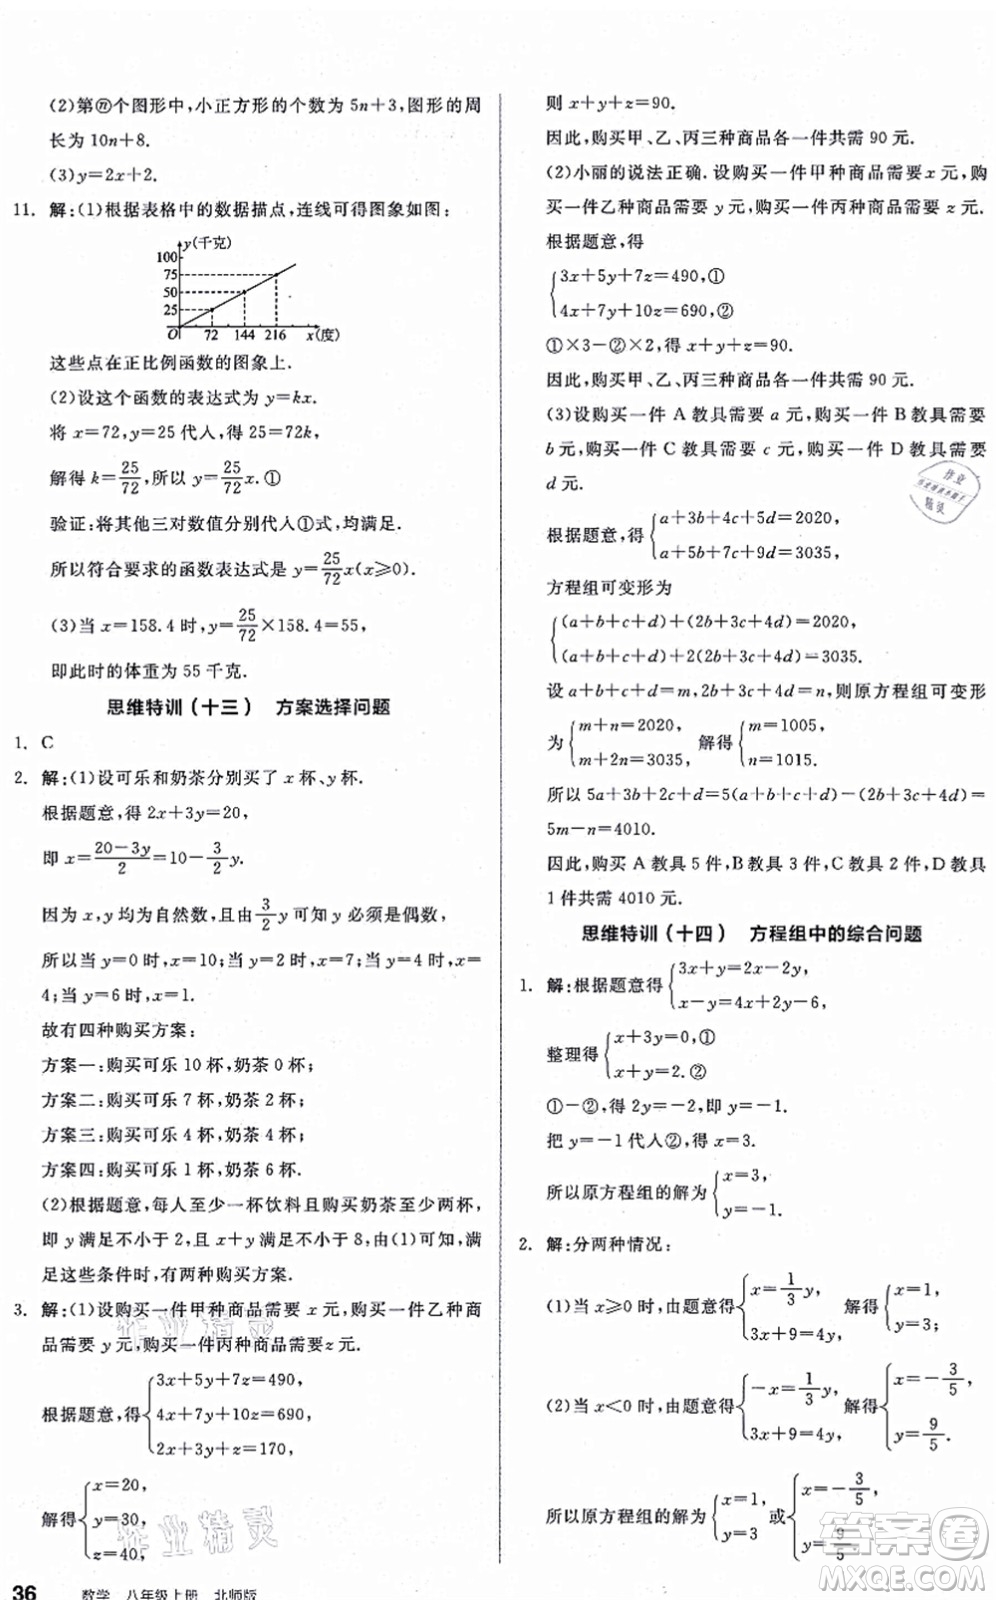 (2)第ⓝ个图形中,小正方形的个数为5n+3,图形的周
长为10n+8.
(3)y=2x+2.
11. 解:(1)根据表格中的数据描点,连线可得图象如图:
y(千克)
100
75
50
25
O 72 144 216 x(度)
这些点在正比例函数的图象上.
(2)设这个函数的表达式为y=kx.
将x=72,y=25代人,得25=72k,
解得k=25/72,所以y=25/72x.①
验证:将其他三对数值分别代人①式,均满足.
所以符合要求的函数表达式是y=25/72x(x≥0).
(3)当x=158.4时,y=25/72×158.4=55,
即此时的体重为55千克.
思维特训(十三) 方案选择问题
1. C
2. 解:(1)设可乐和奶茶分别买了x杯、y杯.
根据题意,得2x+3y=20,
即x=(20-3y)/2=10-3/2y.
因为x,y均为自然数,且由3/2y可知y必须是偶数,
所以当y=0时,x=10;当y=2时,x=7;当y=4时,x=
4;当y=6时,x=1.
故有四种购买方案:
方案一:购买可乐10杯,奶茶0杯;
方案二:购买可乐7杯,奶茶2杯;
方案三:购买可乐4杯,奶茶4杯;
方案四:购买可乐1杯,奶茶6杯.
(2)根据题意,每人至少一杯饮料且购买奶茶至少2杯,
即y满足不小于2且x+y不小于8,由(1)可知,满足
这些条件时,有两种购买方案.
3. 解:(1)设购买一件甲种商品需要x元,购买一件乙种商
品需要y元,购买一件丙种商品需要z元.
根据题意,得{3x+5y+7z=490,
4x+7y+10z=690,
2x+3y+z=170,
解得{x=20,
y=30,
z=40,
36 数学 八年级上册 北师版
则x+y+z=90.
因此,购买甲、乙、丙三种商品各一件共需90元.
(2)小丽的说法正确.设购买一件甲种商品需要x元,购
买一件乙种商品需要y元,购买一件丙种商品需要z元.
根据题意,得
{3x+5y+7z=490,①
4x+7y+10z=690,②
①×3-②×2,得x+y+z=90.
因此,购买甲、乙、丙三种商品各一件共需90元.
(3)设购买一件A教具需要a元,购买一件B教具需要
b元,购买一件C教具需要c元,购买一件D教具需要
d元.
根据题意,得{a+3b+4c+5d=2020,
a+5b+7c+9d=3035,
方程组可变形为
{(a+b+c+d)+(2b+3c+4d)=2020,
(a+b+c+d)+2(2b+3c+4d)=3035,
设a+b+c+d=m,2b+3c+4d=n,则原方程组可变形
为{m+n=2020,
m+2n=3035,
解得{m=1005,
n=1015.
所以5a+3b+2c+d=5(a+b+c+d)-(2b+3c+4d)=
5m-n=4010.
因此,购买A教具5件,B教具3件,C教具2件,D教具
1件共需4010元.
思维特训(十四) 方程组中的综合问题
1. 解:根据题意得{3x+y=2x-2y,
x-y=4x+2y-6,
整理得{x+3y=0,①
x+y=2.②
①-②,得2y=-2,即y=-1.
把y=-1代人②,得x=3.
所以原方程组的解为{x=3,
y=-1.
2. 解:分两种情况:
(1)当x≥0时,由题意得{x=1/3y,
3x+9=4y,
解得{x=1,
y=3;
(2)当x<0时,由题意得{-x=1/3y,
3x+9=4y,
解得{x=-3/5,
y=9/5.
所以原方程组的解为{x=1,
y=3
或{x=-3/5,
y=9/5.
作业精灵
作业精灵
答案卷